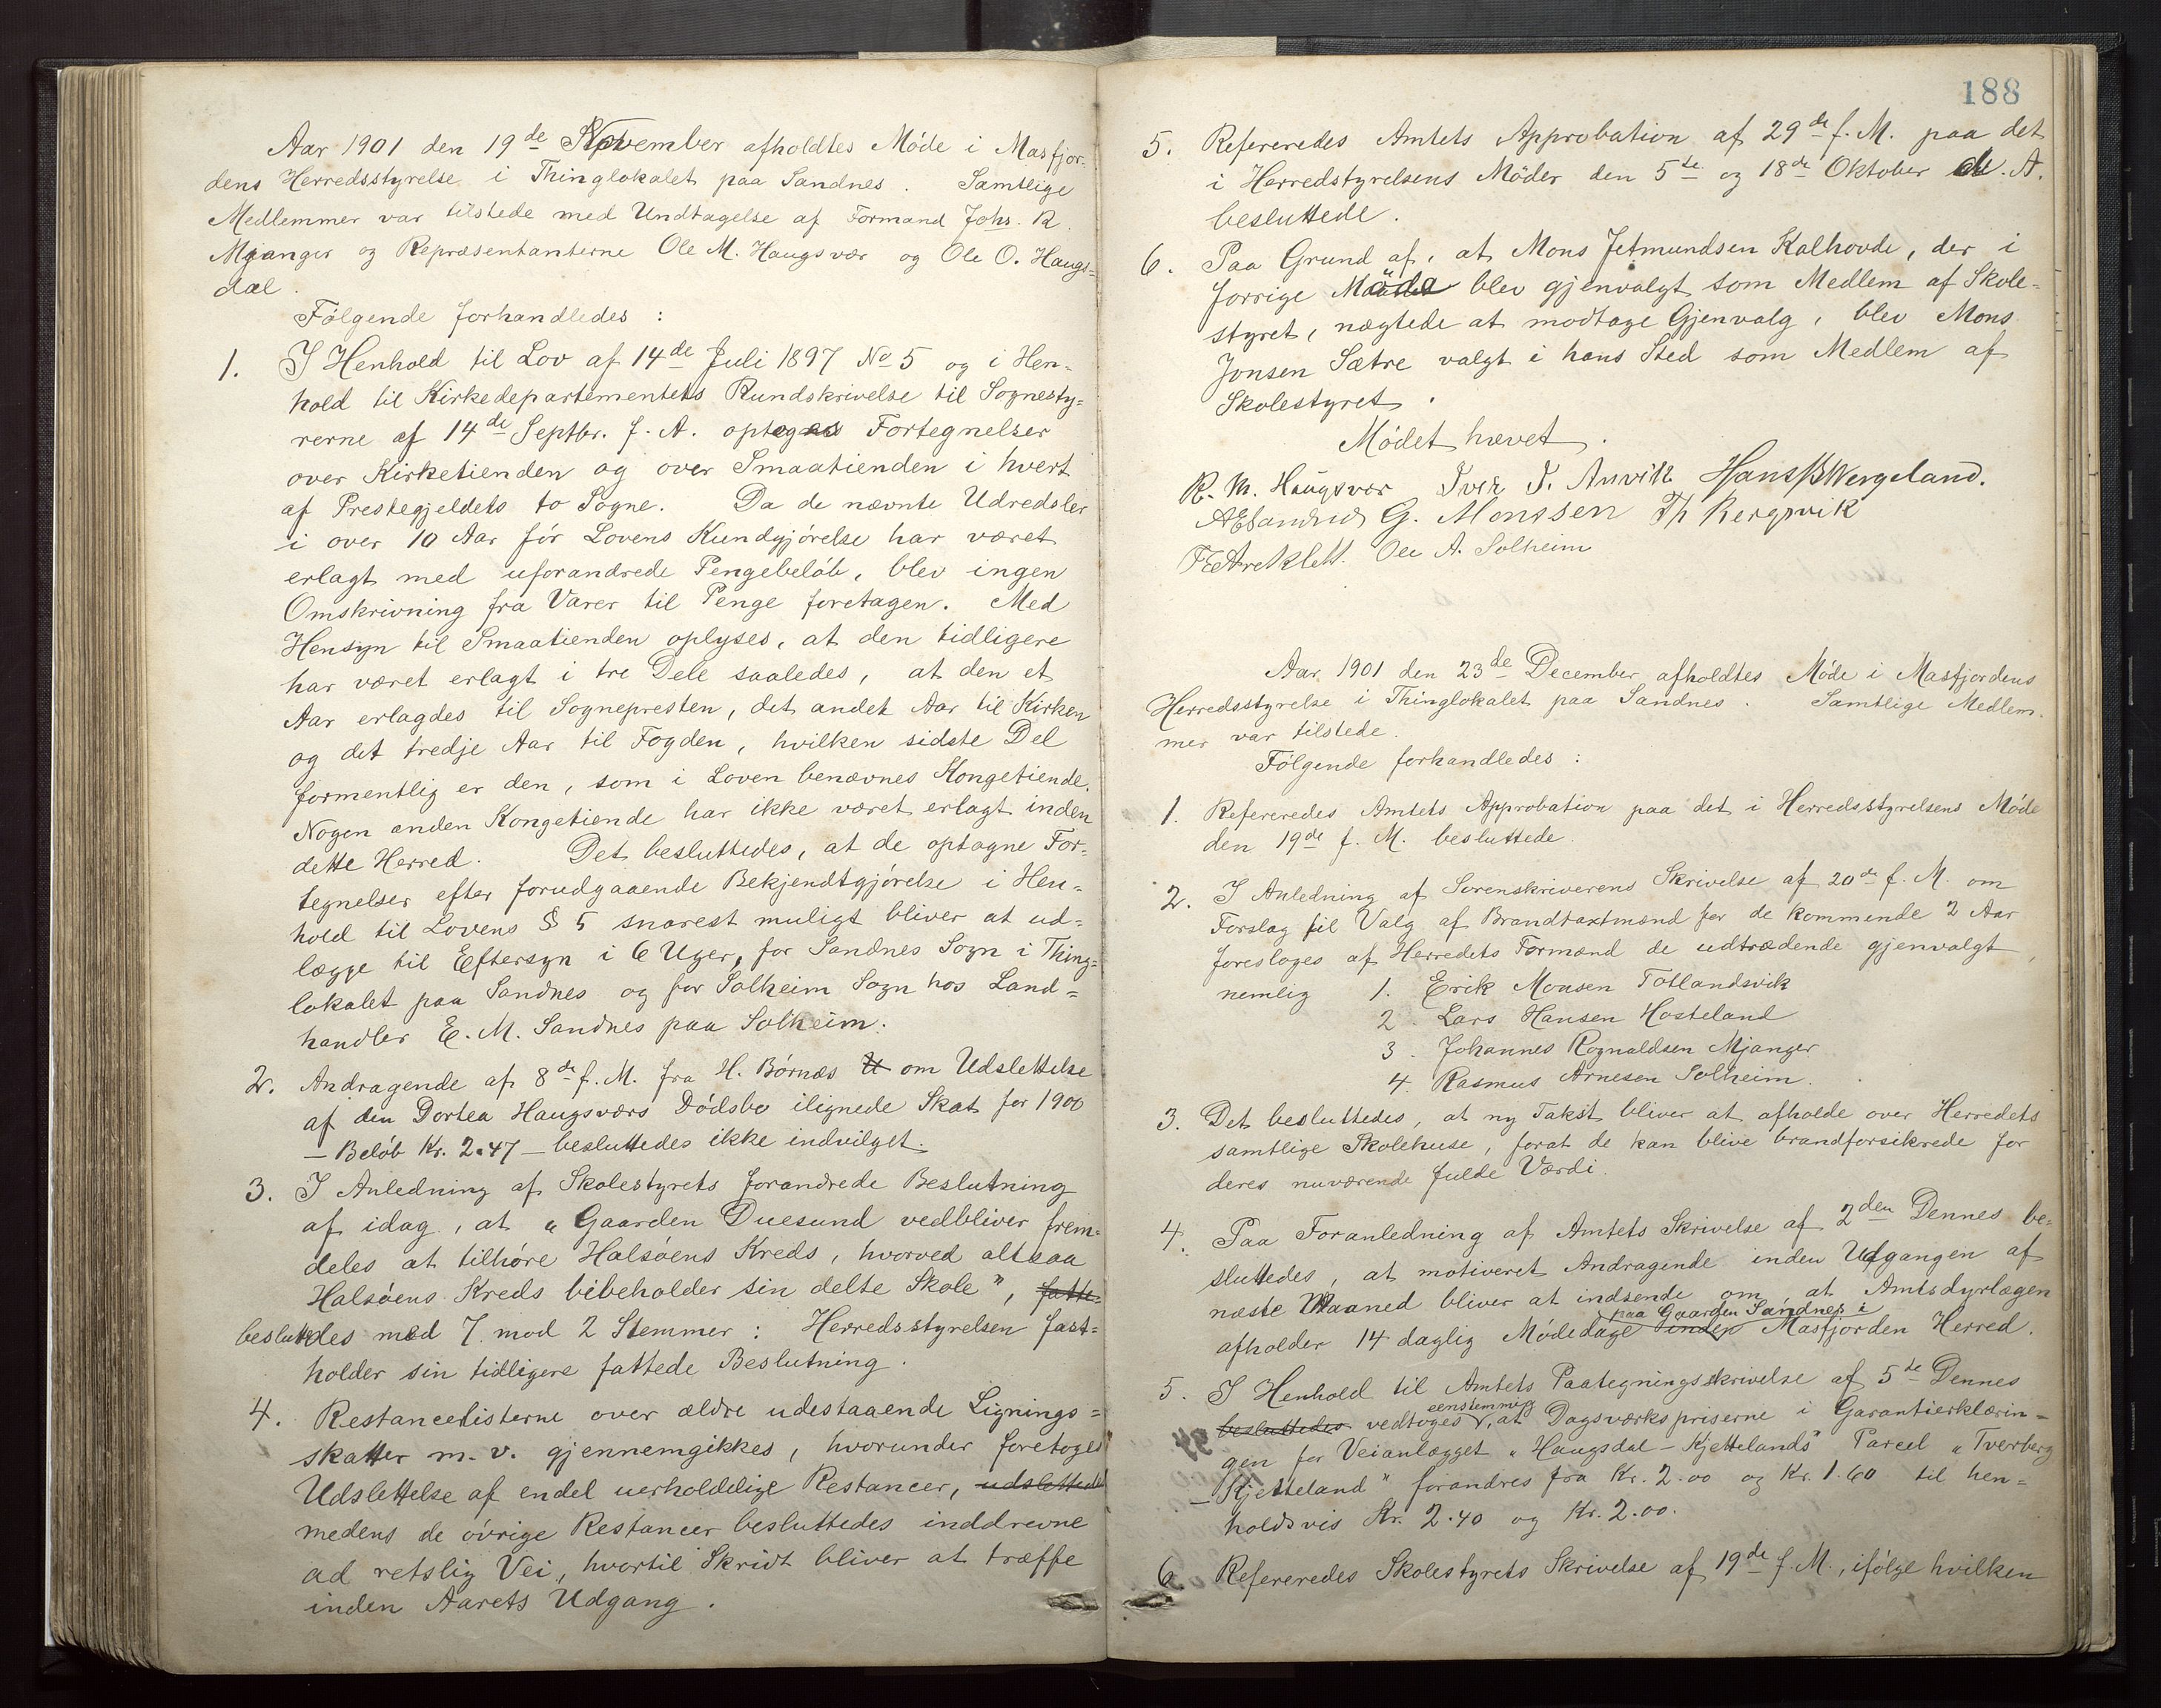 Aar 1901 den 19de November afholdtes Møde i Masfjor-
dens Herredsstyrelse i Thinglokalet paa Sandnes. Samtlige
Medlemmer var tilstede med Undtagelse af Formand Johs. R.
Mjanger og Repræsentanterne Ole M. Haugsvær og Ole O. Haugs=
dal.
Følgende forhandledes:
1. I Henhold til Lov af 14de Juli 1897 No 5 og i Hen-
hold til Kirkedepartementets Rundskrivelse til Sognesty=
rerne af 14de Septbr. f. A. optoges Fortegnelser
over Kirketienden og over Smaatienden i hvert
af Prestegjeldets to Sogne. Da de nævnte Udredsler
i over 10 Aar før Lovens Kundgjørelse har været
erlagt med uforandrede Pengebeløb, blev ingen
Omskrivning fra Varer til Penge foretagen. Med
Hensyn til Smaatienden oplyses, at den tidligere
har været erlagt i tre Dele saaledes, at den et
Aar erlagdes til Sognepresten, det andet Aar til Kirken
og det tredje Aar til Fogden, hvilken sidste Del
formentlig er den, som i Loven benævnes Kongetiende.
Nogen anden Kongetiende har ikke været erlagt inden
dette Herred. Det besluttedes, at de optagne For=
tegnelser efter forudgaaende Bekjendtgjørelse i Hen=
hold til Lovens § 5 snarest muligt bliver at ud=
lægge til Eftersyn i 6 Uger, for Sandnes Sogn i Thing=
lokalet paa Sandnes og for Solheim Sogn hos Land=
handler E. M. Sandnes paa Solheim.
2. Andragende af 8de f. M. fra H. Børnæs U om Udslettelse
af den Dortea Haugsværs Dødsbo ilignede Skat for 1900
— Beløb Kr. 2.47 — besluttedes ikke indvilget.
3. I Anledning af Skolestyrets forandrede Beslutning
af idag, at „Gaarden Duesund vedbliver frem=
deles at tilhøre Halsøens Kreds, hvorved altsaa
Halsøens Kreds bibeholder sin delte Skole", fatte-
besluttedes med 7 mod 2 Stemmer: Herredsstyrelsen fast=
holder sin tidligere fattede Beslutning.
4. Restancelisterne over ældre udestaaende Lignings=
skatter m. v. gjennemgikkes, hvorunder foretoges
Udslettelse af endel uerholdelige Restancer, udslettedes
medens de øvrige Restancer besluttedes inddrevne
ad retslig Vei, hvortil Skridt bliver at træffe
inden Aarets Udgang.
188
5. Refereredes Amtets Approbation af 29de f. M. paa det
i Herredstyrelsens Møder den 5te og 18de Oktober d. A.
besluttede.
6. Paa Grund af, at Mons Jetmundsen Kalhovde, der i
forrige Møde blev gjenvalgt som Medlem af Skole=
styret, nægtede at modtage Gjenvalg, blev Mons
Jonsen Sætre valgt i hans Sted som Medlem af
Skolestyret.
Mødet hævet.
R. M. Haugsvær Ivar I. Anvik Hans B Wergeland.
AESandnes G. Monssen Th Bergsvik
Ole A. Solheim
Aar 1901 den 23de December afholdtes Møde i Masfjordens
Herredsstyrelse i Thinglokalet paa Sandnes. Samtlige Medlem-
mer var tilstede.
Følgende forhandledes:
1. Refereredes Amtets Approbation paa det i Herredsstyrelsens Møde
den 19de f. M. besluttede.
2. I Anledning af Sorenskriverens Skrivelse af 20de f. M. om
Forslag til Valg af Brandtaxtmænd for de kommende 2 Aar
foresloges af Herredets Formænd de udtrædende gjenvalgt,
nemlig 1. Erik Monsen Totlandsvik
2. Lars Hansen Hosteland
3. Johannes Rognaldsen Mjanger
4. Rasmus Arnesen Solheim.
3. Det besluttedes, at ny Takst bliver at afholde over Herredets
samtlige Skolehuse, forat de kan blive brandforsikrede for
deres nuværende fulde Værdi.
4. Paa Foranledning af Amtets Skrivelse af 2den Dennes be=
sluttedes, at motiveret Andragende inden Udgangen af
næste Maaned bliver at indsende om, at Amtsdyrlægen
paa Gaarden Sandnes i
afholder 14 daglig Mødedage inden Masfjorden Herred.
5. I Henhold til Amtets Paategningsskrivelse af 5te Dennes
eenstemmig
besluttedes vedtoges, at Dagsværkspriserne i Garantierklærin=
gen for Veianlægget „Haugsdal - Kjettelands" Parcel „Tverberg
- Kjetteland" forandres fra Kr. 2.00 og Kr. 1.60 til hen=
holdsvis Kr. 2.40 og Kr. 2.00.
6. Refereredes Skolestyrets Skrivelse af 19de f. M., ifølge hvilken